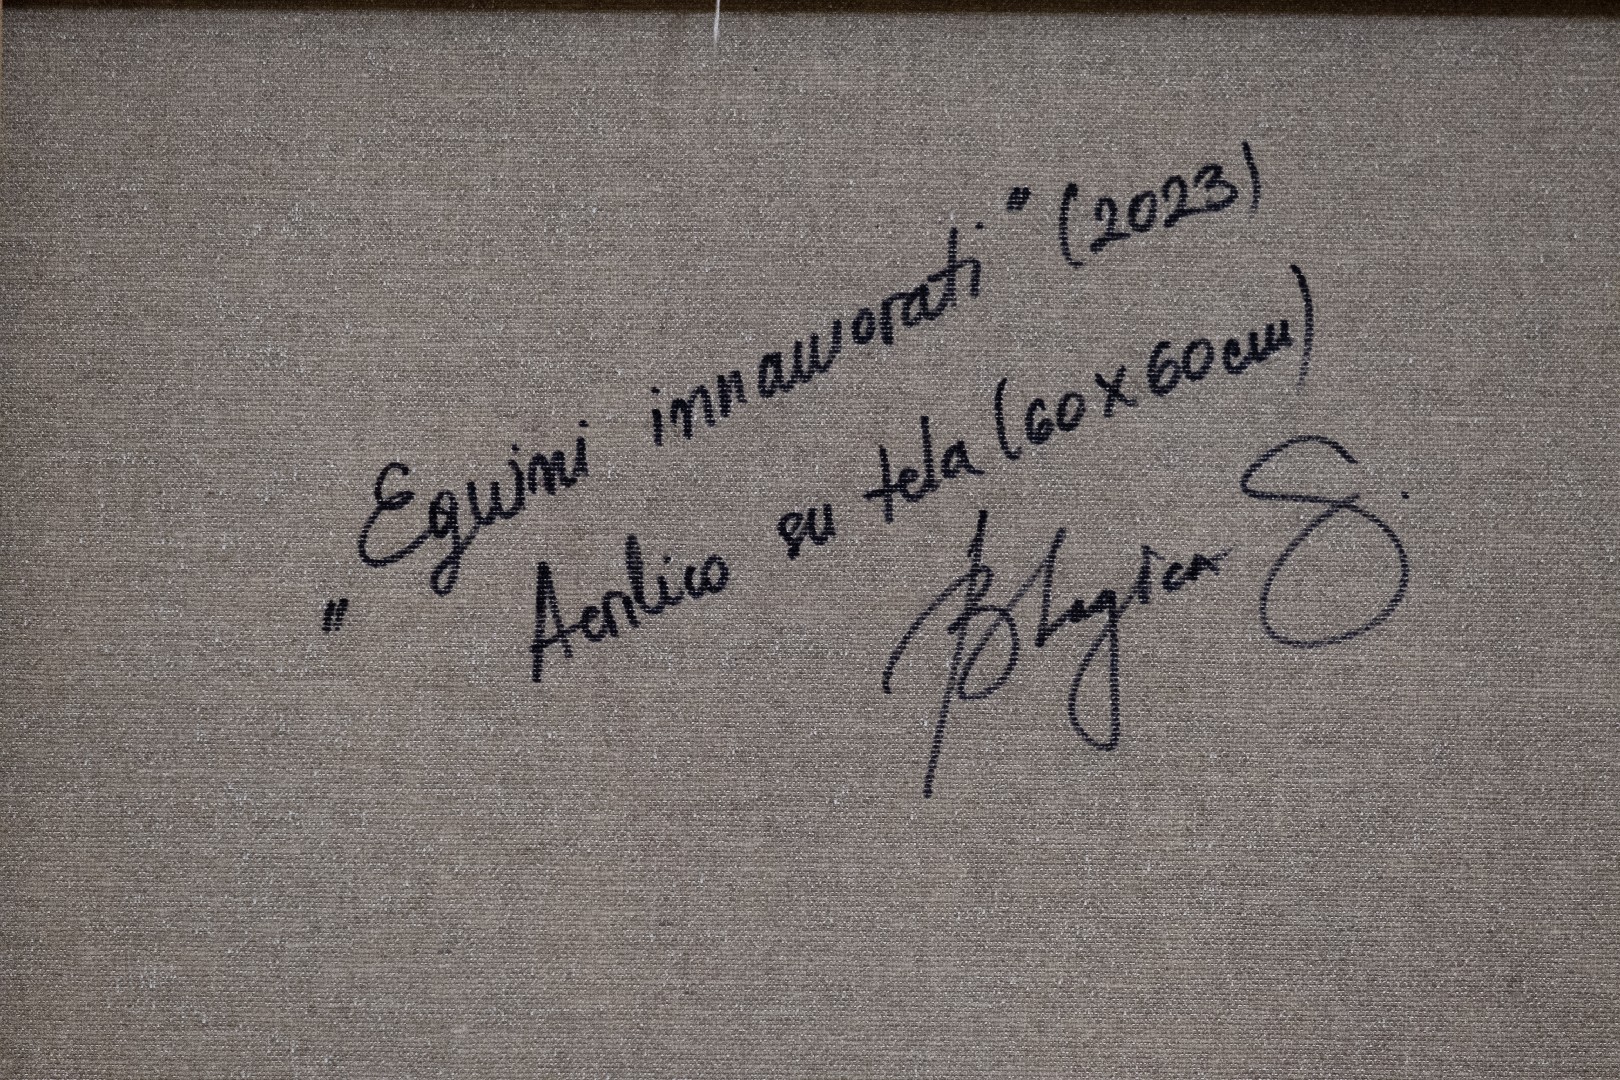 "Equini innamorati" (2023)
Acrilico su tela (60x60cm)
Blagica S.